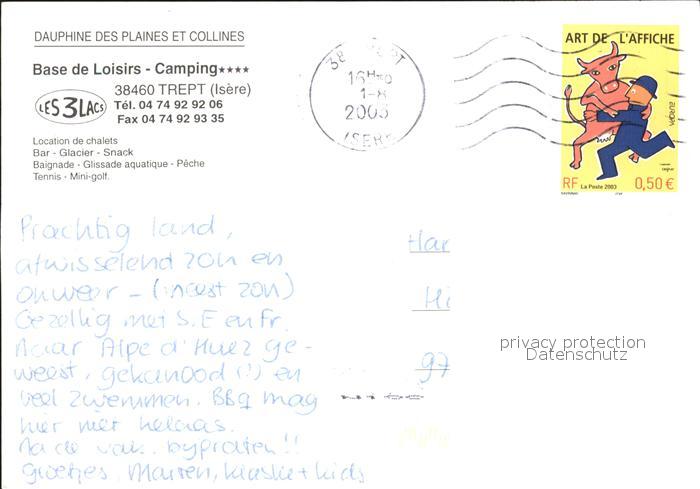 DAUPHINE DES PLAINES ET COLLINES
Base de Loisirs - Camping★★★★
LES 3 LACS
38460 TREPT (Isère)
Tél. 04 74 92 92 06
Fax 04 74 92 93 35
Location de chalets
Bar - Glacier - Snack
Baignade - Glissade aquatique - Pêche
Tennis - Mini-golf.
38 TREPT
16H
1-8
2003
ISERE
ART DE L'AFFICHE
EUROPA
RF La Poste 2003 0,50 €
Prachtig land,
afwisselend zon en
onweer - (meest zon)
Gezellig met S.E en Fr.
Naar Alpe d'Huez ge-
weest, gekanood (!) en
veel zwemmen. BBq mag
hier niet helaas.
Na de vak. bypraten!!
groetjes, + kids
Har
Hi
97
privacy protection
Datenschutz